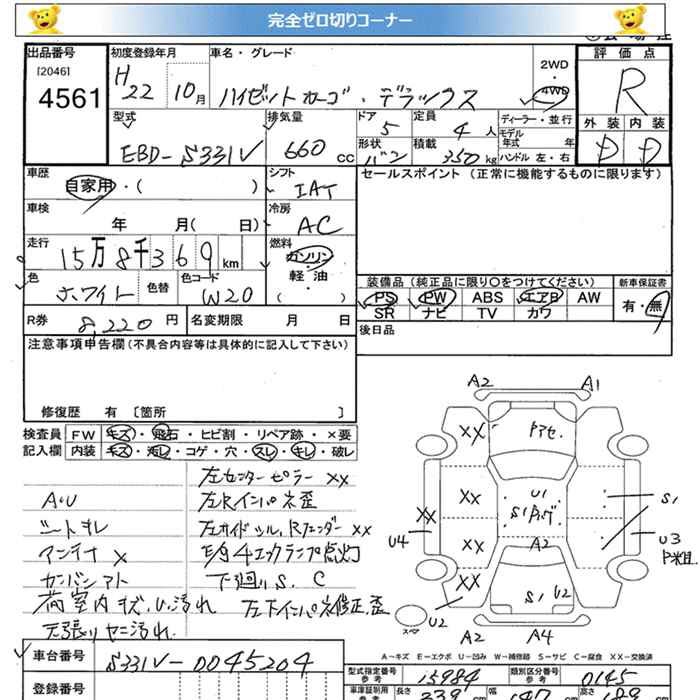 完全ゼロ切りコーナー
出品番号 初度登録年月 車名・グレード 2WD 評価点
[2046]
4561 H22 10月 ハイゼットカーゴ・デラックス 4WD R
型式 排気量 ドア 5 定員 4人 ディーラー・並行 外装 内装
EBD-S331V 660cc 形状 バン 積載 350kg モデル年式 年 ハンドル 左・右 D D
車歴 自家用・( ) シフト IAT セールスポイント (正常に機能するものに限ります)
車検 年 月( 日) 冷房 AC
走行 15万8千369km 燃料 ガソリン・軽油
色 ホワイト 色替 色コード W20 ( )
装備品(純正品に限り○をつけてください) 新車保証書
PS PW ABS エアB AW 有・無
SR ナビ TV カワ
R券 8,220円 名変期限 月 日 後日品
注意事項申告欄(不具合内容等は具体的に記入して下さい)
修復歴 有 [箇所 ]
検査員 FW キズ・飛石・ヒビ割・リペア跡・×要
記入欄 内装 キズ・汚レ・コゲ・穴・スレ・キレ・破レ
左センターピラー XX
A・U 左Rインパネ歪
シートキレ 左サイドシル,Rフェンダー XX
アンテナ × E/G 4エックランプ点灯
カンバンアト 下廻りS.C
荷室内キズ,U,汚れ 左下インパネ修正,歪
天張りヤニ汚れ
A2 A1
XX アセ.
XX U1
S1
XX U4 XX A2 S1 U3
XX
S1 U2
U2 スペア A2 A4
A-キズ E-エクボ U-凹み W-補修跡 S-サビ C-腐食 XX-交換済
車台番号 S331V-0045204
型式指定番号 参考 15984 類別区分番号 参考 0145
登録番号 車庫証明用 参考 長さ 339 cm 幅 147 cm 高さ 189 cm